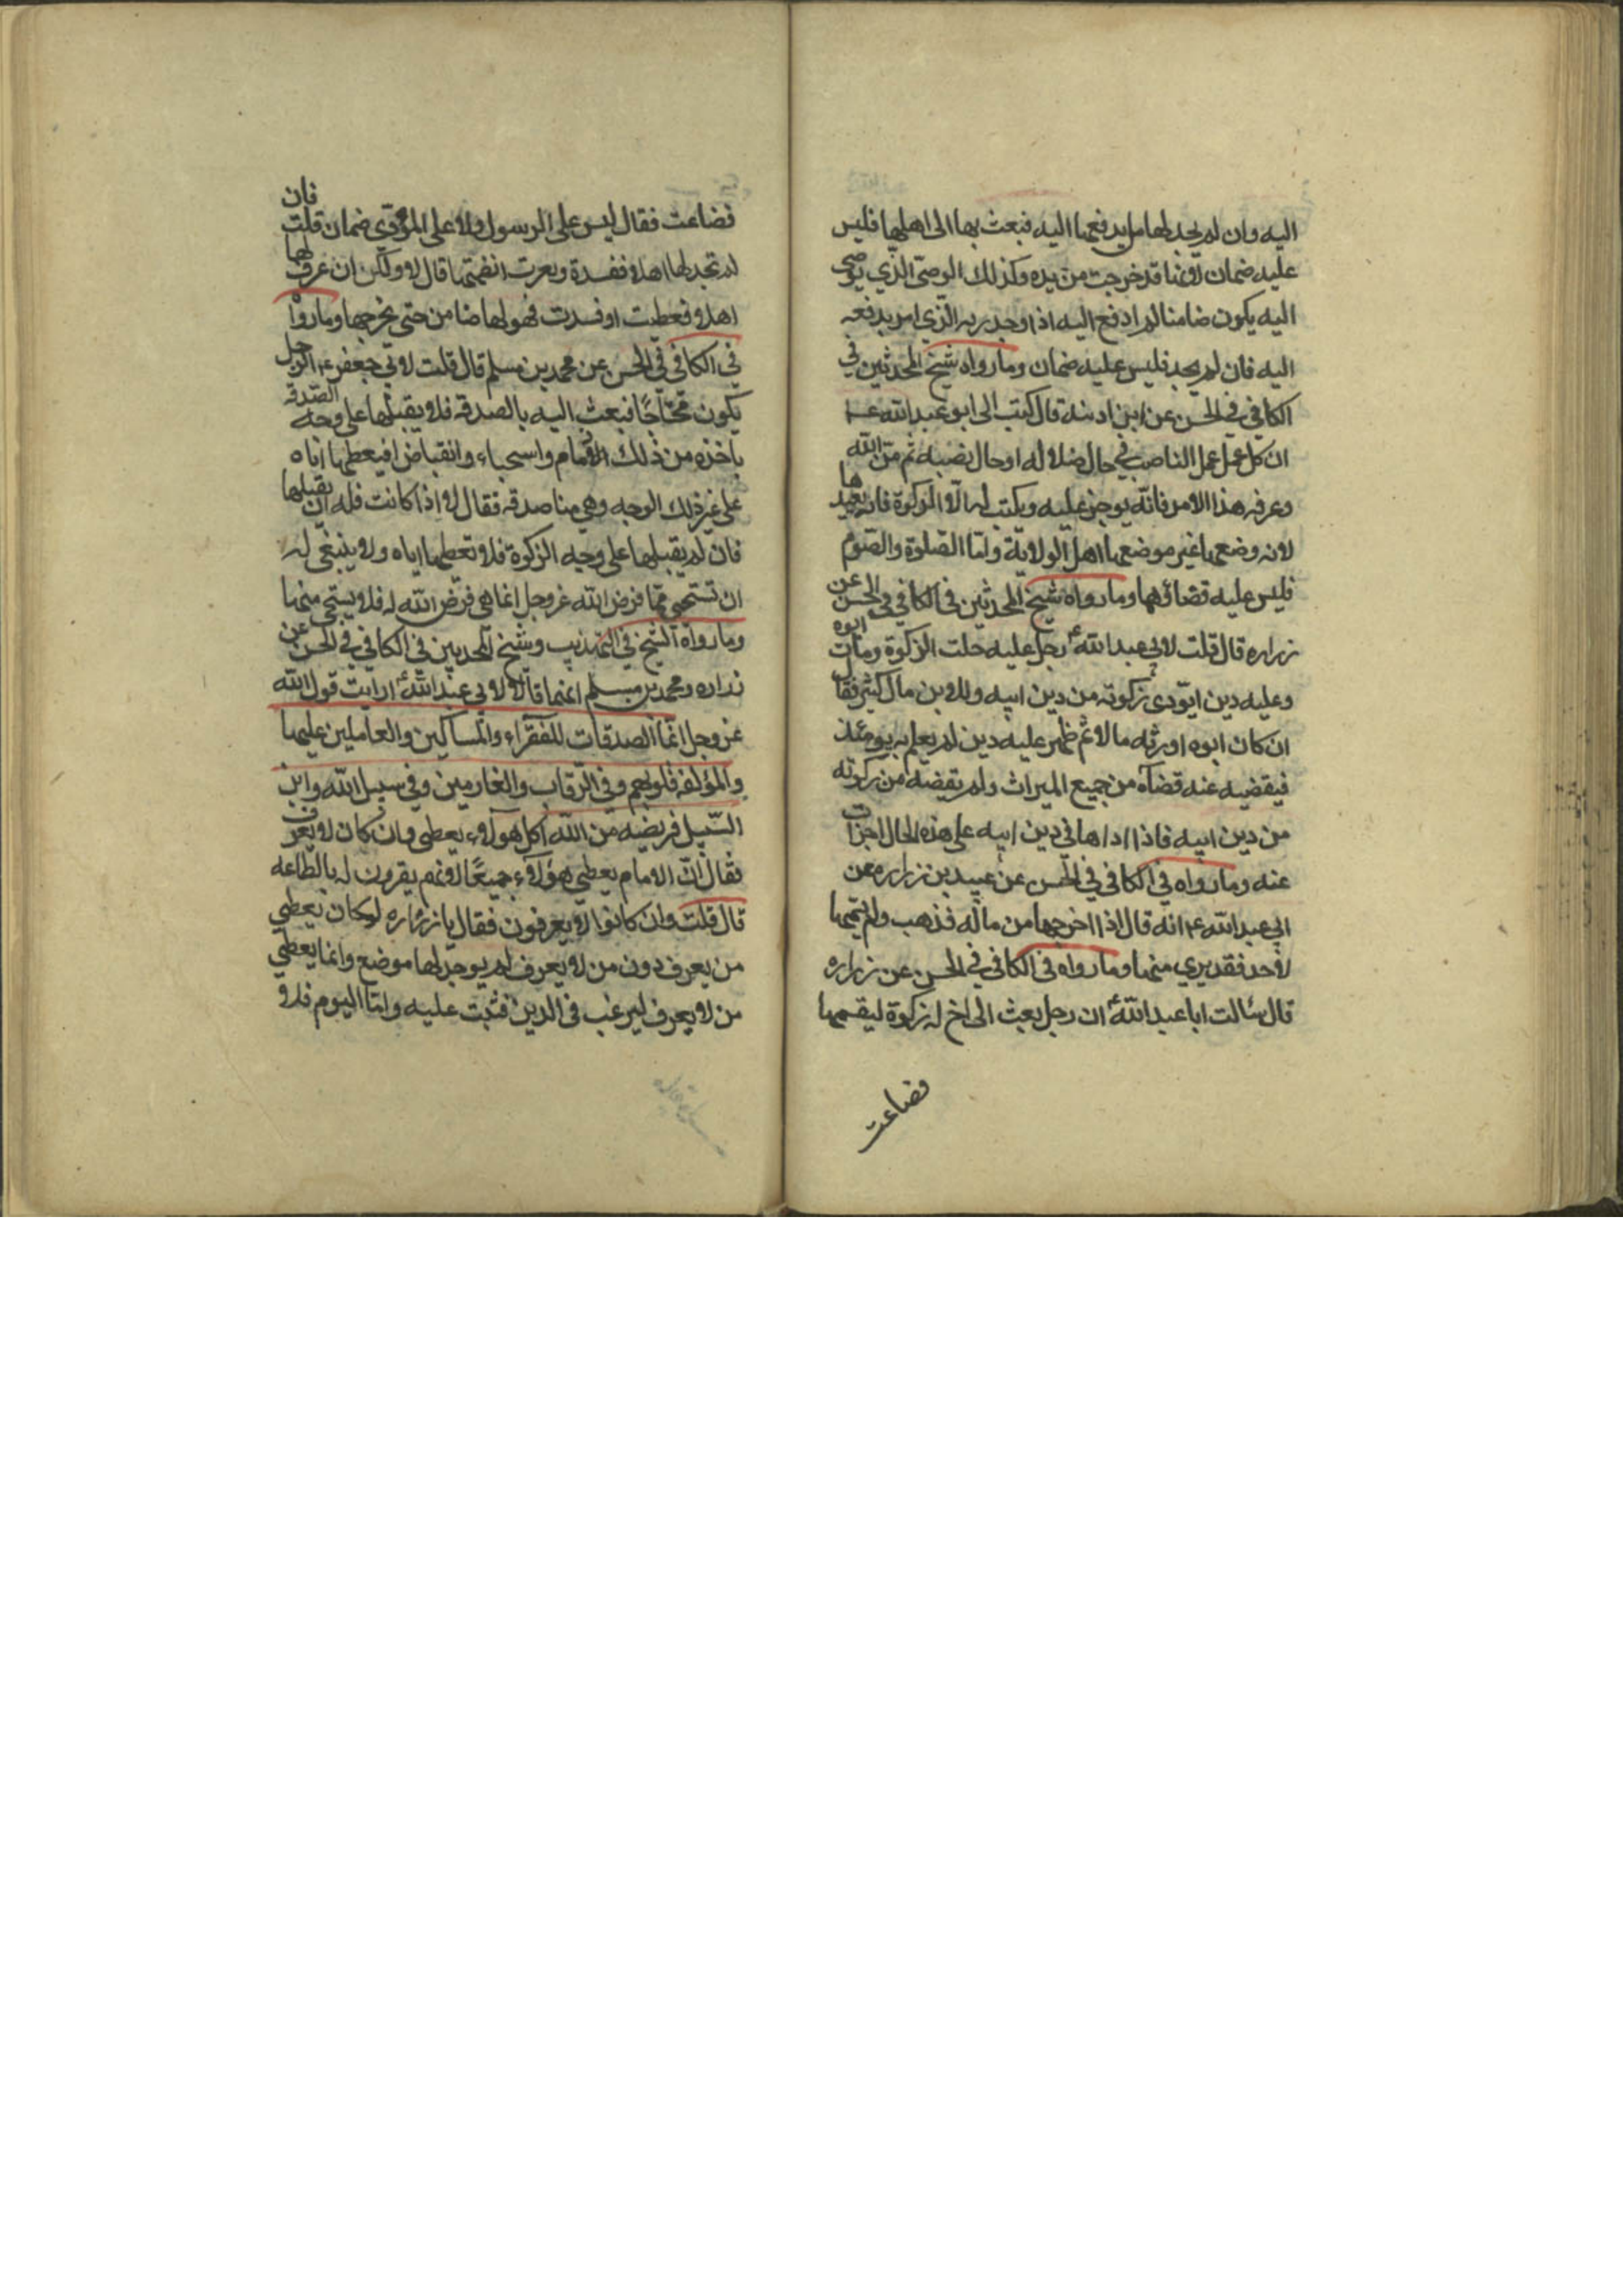 اليه وان لم يجد لها من يدفعها اليه فبعث بها الى اهلها فليس
عليه ضمان لانها قد خرجت من يده وكذلك الوصى الذي يوصى
اليه يكون ضامنا لما دفع اليه اذا وجد ربه الذي امر بدفعه
اليه فان لم يجد فليس عليه ضمان وما رواه شيخ المحدثين في
الكافي في الحسن عن ابن اذينه قال كتب الى ابو عبدالله ع
ان كل عمل عمل الناصب في حال ضلاله او حال نصبه ثم من الله
وعرفه هذا الامر فانه يوجر عليه ويكتب له الا الزكوة فانه يعيدها
لانه وضعها غير موضعها اهل الولاية واما الصلوة والصوم
فليس عليه قضاؤهما وما رواه شيخ المحدثين في الكافي في الحسن عن
زراره قال قلت لابي عبدالله ع رجل عليه حلت الزكوة ومات ابوه
وعليه دين ايؤدى زكوته من دين ابيه وللابن مال كثير فقال
ان كان ابوه اورثه مالا ثم ظهر عليه دين لم يعلم به يومئذ
فيقضيه عنه قضاه من جميع الميراث ولم يقضه من زكوته
من دين ابيه فاذا اداها في دين ابيه على هذه الحال اجزات
عنه وما رواه في الكافي في الحسن عن عبيد بن زراره عن
ابي عبدالله ع انه قال اذا اخرجها من ماله فذهب ولم يسمها
لاحد فقد بري منها وما رواه في الكافي في الحسن عن زراره
قال سالت ابا عبدالله ع ان رجل بعث الى اخ له زكوة ليقسمها
فضاعت
فضاعت فقال ليس على الرسول ولا على المؤدي ضمان قلت فان
لم تجد لها اهلا ففسدة وتغيرت ايضمنها قال لا ولكن ان عرف لها
اهلا فعطبت او فسدت فهو لها ضامن حتى يخرجها وما رواه
في الكافي في الحسن عن محمد بن مسلم قال قلت لابي جعفر ع الرجل
يكون محتاجا فبعث اليه بالصدقه فلا يقبلها على وجه الصدقه
ياخذه من ذلك ذمام واستحياء وانقباض افيعطيها اياه
على غير ذلك الوجه وهي منا صدقه فقال لا اذا كانت فله ان يقبلها
فان لم يقبلها على وجه الزكوة فلا تعطها اياه ولا ينبغي له
ان تستحي مما فرض الله عز وجل انما هي فرض الله له فلا يستحي منها
وما رواه الشيخ في التهذيب وشيخ المحدثين في الكافي في الحسن عن
زراره ومحمد بن مسلم انهما قالا لابي عبدالله ع ارايت قول الله
عز وجل انما الصدقات للفقراء والمساكين والعاملين عليها
والمؤلفه قلوبهم وفي الرقاب والغارمين وفي سبيل الله وابن
السبيل فريضه من الله اكل هولاء يعطى وان كان لا يعرف
فقال ان الامام يعطي هؤلاء جميعا لانهم يقرون له بالطاعه
قال قلت وان كانوا لا يعرفون فقال يا زراره لو كان يعطي
من يعرف دون من لا يعرف لم يوجد لها موضع وانما يعطي
من لا يعرف ليرغب في الدين فثبت عليه واما اليوم فلا